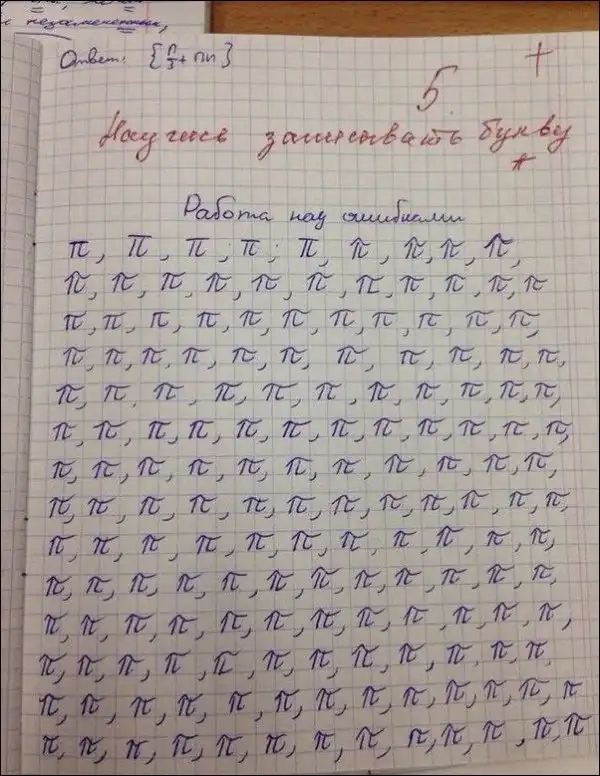 незамененный,
Ответ: {п/3 + пn}
+
5
Научись записывать букву
π
Работа над ошибками
π, π, π, π, π, π, π, π, π,
π, π, π, π, π, π, π, π, π, π, π
π, π, π, π, π, π, π, π, π, π, π,
π, π, π, π, π, π, π, π, π, π, π,
π, π, π, π, π, π, π, π, π, π, π,
π, π, π, π, π, π, π, π, π, π, π, π,
π, π, π, π, π, π, π, π, π, π, π,
π, π, π, π, π, π, π, π, π, π, π, π,
π, π, π, π, π, π, π, π, π, π, π,
π, π, π, π, π, π, π, π, π, π, π, π,
π, π, π, π, π, π, π, π, π, π, π, π,
π, π, π, π, π, π, π, π, π, π, π, π,
π, π, π, π, π, π, π, π, π, π, π, π, π
π, π, π, π, π, π, π, π, π, π, π, π, π